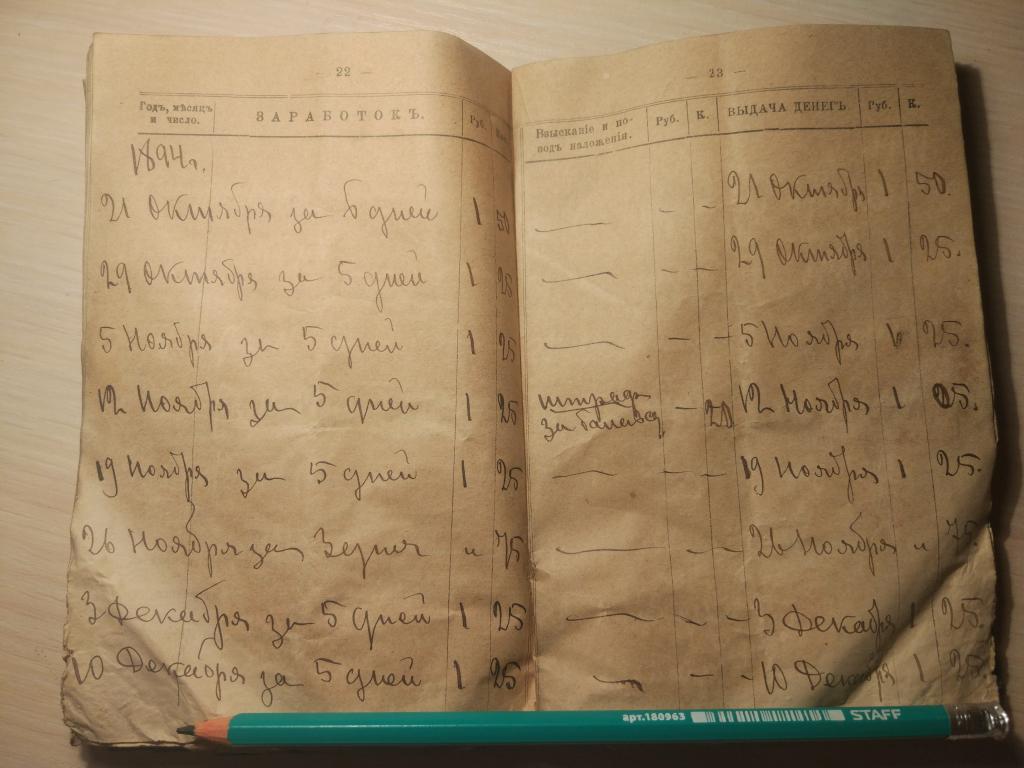 — 22 —
Годъ, мѣсяцъ и число. ЗАРАБОТОКЪ. Руб.
1894 г.
21 Октября за 6 дней 1 50
29 Октября за 5 дней 1 25
5 Ноября за 5 дней 1 25
12 Ноября за 5 дней 1 25
19 Ноября за 5 дней 1 25
26 Ноября за 3 дня " 75
3 Декабря за 5 дней 1 25
10 Декабря за 5 дней 1 25
— 23 —
Взысканіе и поводъ наложенія. Руб. К. ВЫДАЧА ДЕНЕГЪ. Руб. К.
— - - 21 Октября 1 50.
— - - 29 Октября 1 25.
— - - 5 Ноября 1 25.
штраф
за - 20 12 Ноября 1 05.
— - - 19 Ноября 1 25.
— - - 26 Ноября " 75.
— - - 3 Декабря 1 25.
— - - 10 Декабря 1 25.
арт.180963 STAFF